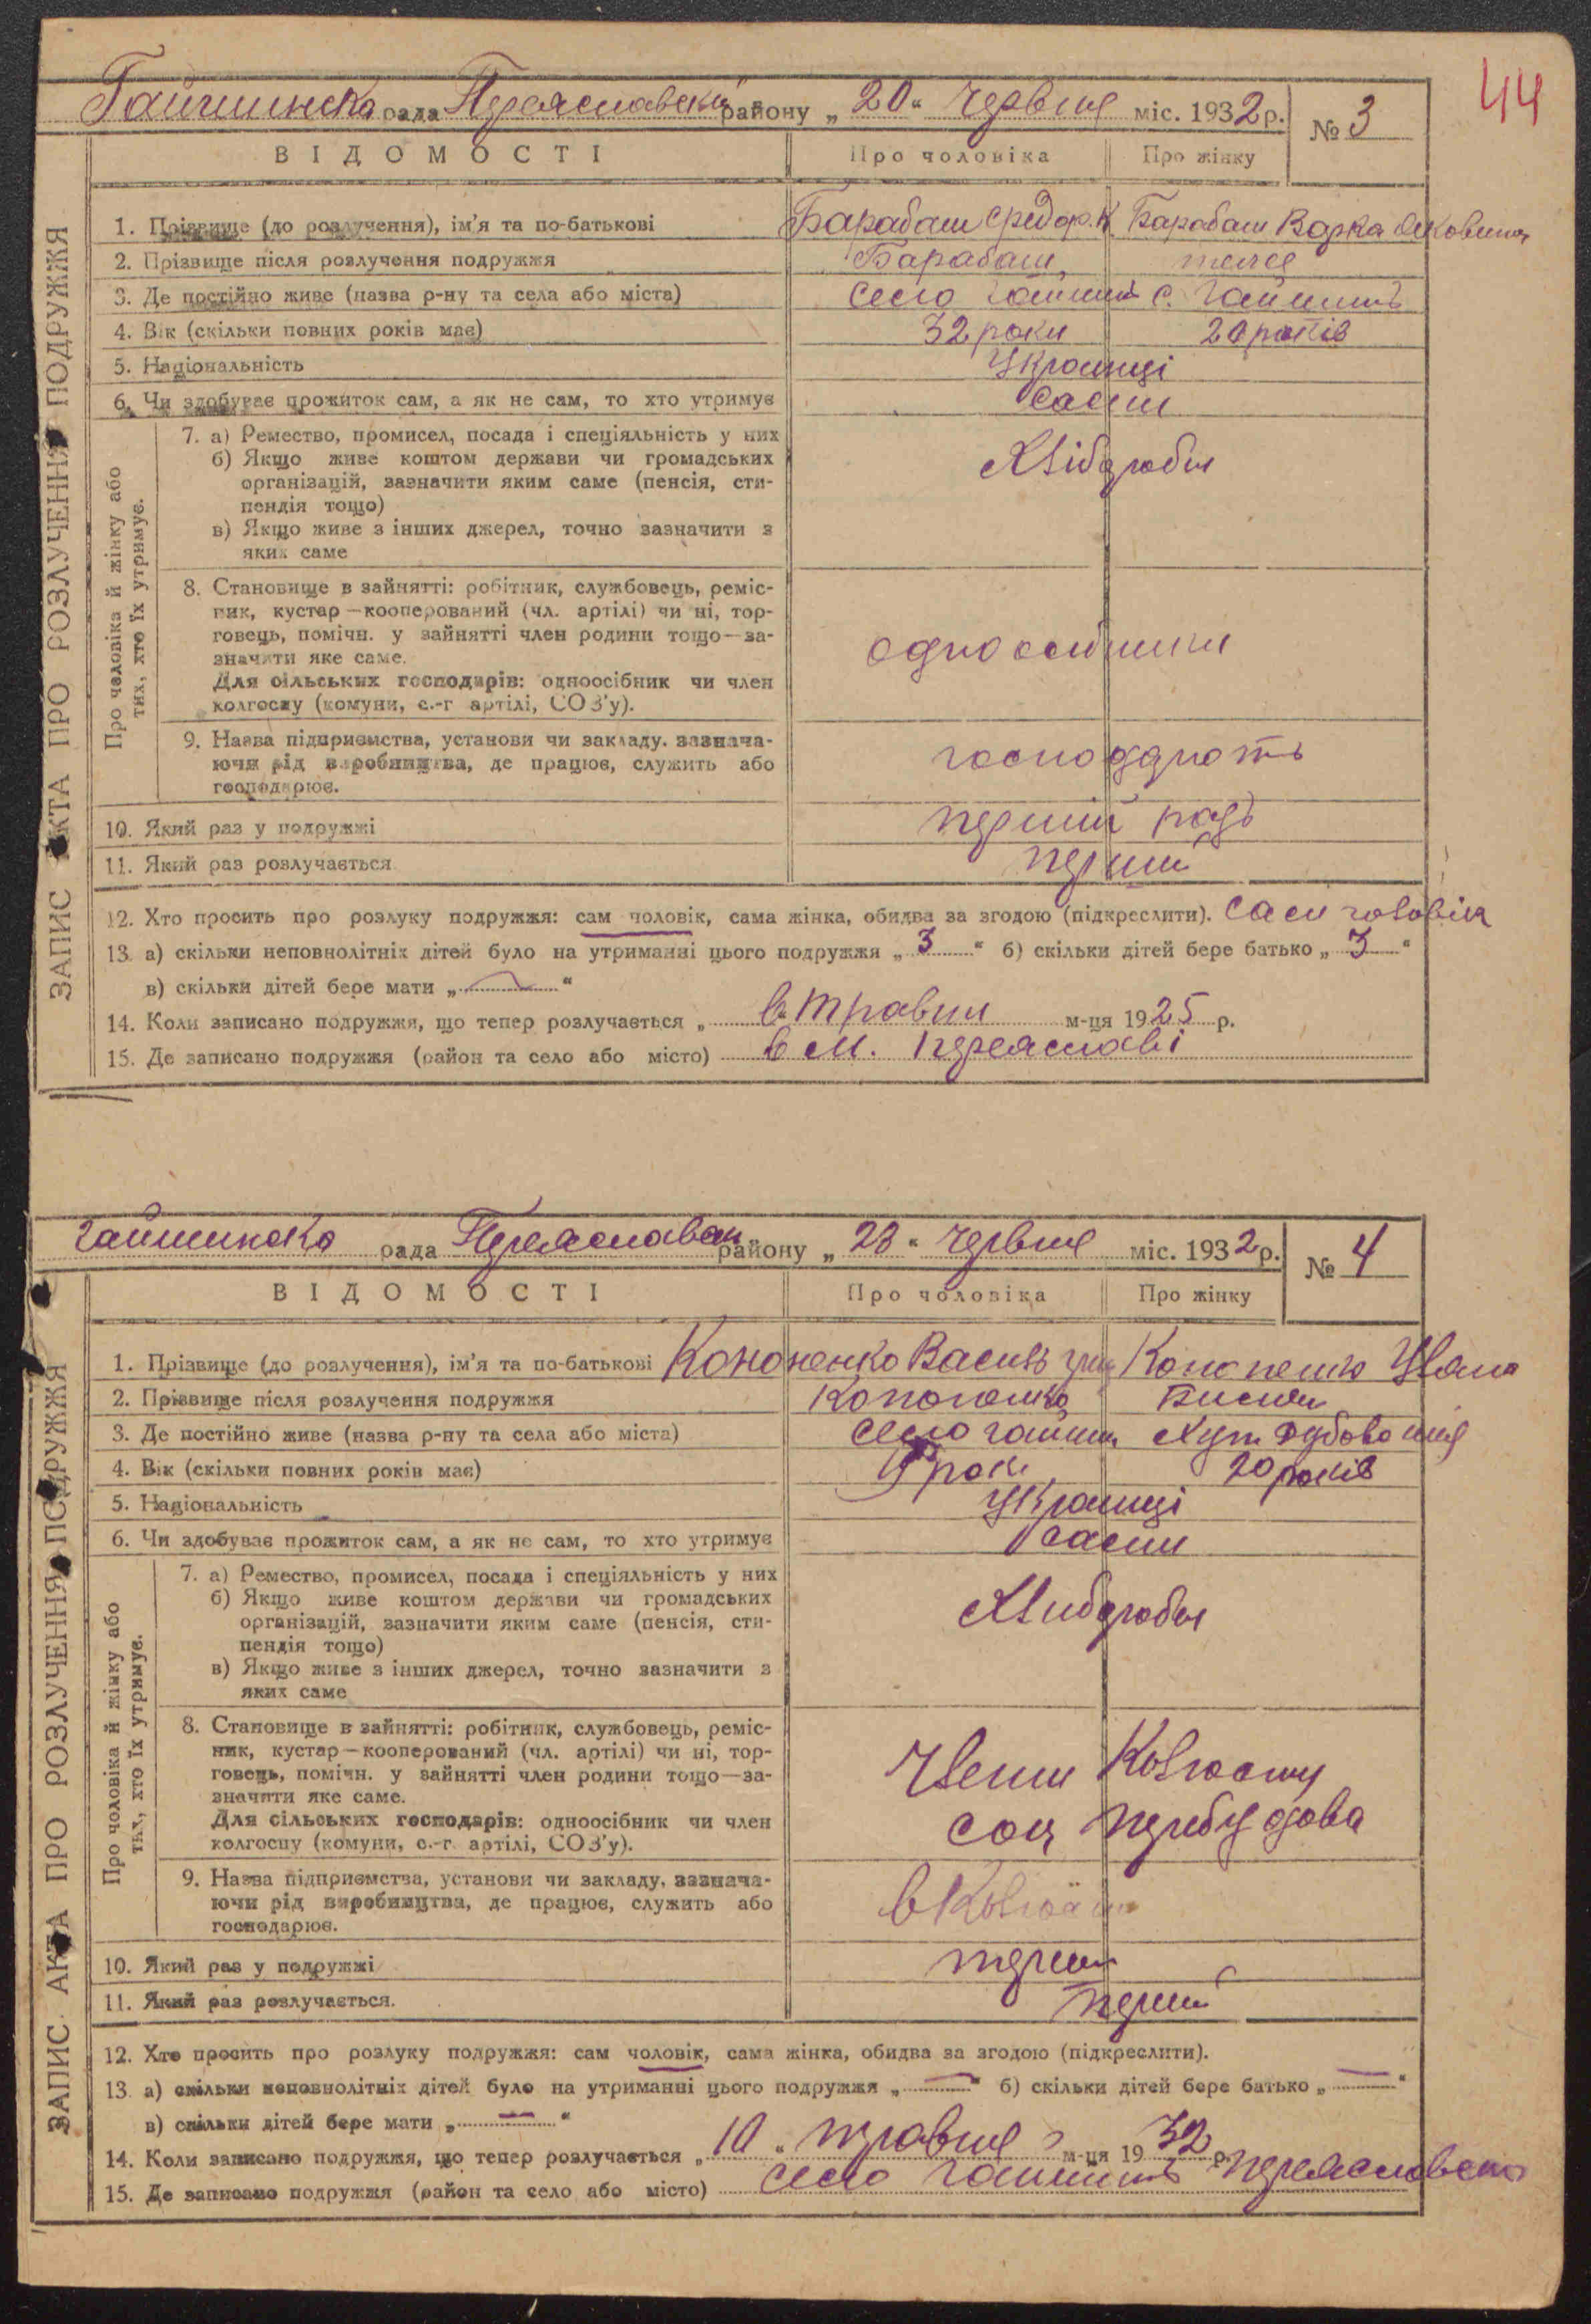 44
Гайшинска рада Переяславськ району „20“ червня міс. 1932 р. № 3
ВІДОМОСТІ Про чоловіка Про жінку
ЗАПИС АКТА ПРО РОЗЛУЧЕННЯ ПОДРУЖЖЯ
1. Прізвище (до розлучення), ім'я та по-батькові Барабаш Федор. К. Барабаш Варка
2. Прізвище після розлучення подружжя Барабаш
3. Де постійно живе (назва р-ну та села або міста) село Гайшин с. Гайшинь
4. Вік (скільки повних років має) 32 роки років
5. Національність Українці
6. Чи здобуває прожиток сам, а як не сам, то хто утримує сами
Про чоловіка й жінку або тих, хто їх утримує.
7. а) Ремество, промисел, посада і спеціяльність у них
б) Якщо живе коштом держави чи громадських
організацій, зазначити яким саме (пенсія, сти-
пендія тощо)
в) Якщо живе з інших джерел, точно зазначити з
яких саме
Хліброби
8. Становище в зайнятті: робітник, службовець, реміс-
ник, кустар—кооперований (чл. артілі) чи ні, тор-
говець, помічн. у зайнятті член родини тощо—за-
значити яке саме.
Для сільських господарів: одноосібник чи член
колгоспу (комуни, с.-г артілі, СОЗ'у).
9. Назва підприємства, установи чи закладу, зазнача-
ючи рід виробництва, де працює, служить або
господарює.
10. Який раз у подружжі перший разь
11. Який раз розлучається перший
12. Хто просить про розлуку подружжя: сам чоловік, сама жінка, обидва за згодою (підкреслити). Сам чоловік
13. а) скільки неповнолітніх дітей було на утриманні цього подружжя „3“ б) скільки дітей бере батько „3“
в) скільки дітей бере мати „—“
14. Коли записано подружжя, що тепер розлучається „ в травня м-ця 1925 р.
15. Де записано подружжя (район та село або місто) в м. Переяславі
Гайшинска рада Переяславськ району „23“ червня міс. 1932 р. № 4
ВІДОМОСТІ Про чоловіка Про жінку
ЗАПИС АКТА ПРО РОЗЛУЧЕННЯ ПОДРУЖЖЯ
1. Прізвище (до розлучення), ім'я та по-батькові Кононенко Василь Кононенко
2. Прізвище після розлучення подружжя Кононенко
3. Де постійно живе (назва р-ну та села або міста) село Гайшин Хут
4. Вік (скільки повних років має) роки 20 років
5. Національність Українці
6. Чи здобуває прожиток сам, а як не сам, то хто утримує сами
Про чоловіка й жінку або тих, хто їх утримує.
7. а) Ремество, промисел, посада і спеціяльність у них
б) Якщо живе коштом держави чи громадських
організацій, зазначити яким саме (пенсія, сти-
пендія тощо)
в) Якщо живе з інших джерел, точно зазначити з
яких саме
Хлиброби
8. Становище в зайнятті: робітник, службовець, реміс-
ник, кустар—кооперований (чл. артілі) чи ні, тор-
говець, помічн. у зайнятті член родини тощо—за-
значити яке саме.
Для сільських господарів: одноосібник чи член
колгоспу (комуни, с.-г артілі, СОЗ'у).
Члени Колгоспу
соц перебудова
9. Назва підприємства, установи чи закладу, зазнача-
ючи рід виробництва, де працює, служить або
господарює.
в Колгоспі
10. Який раз у подружжі перший
11. Який раз розлучається. перший
12. Хто просить про розлуку подружжя: сам чоловік, сама жінка, обидва за згодою (підкреслити).
13. а) скільки неповнолітніх дітей було на утриманні цього подружжя „—“ б) скільки дітей бере батько „—“
в) скільки дітей бере мати „—“
14. Коли записано подружжя, що тепер розлучається „10“ травня м-ця 1932 р.
15. Де записано подружжя (район та село або місто) село Гайшинь Переяславско